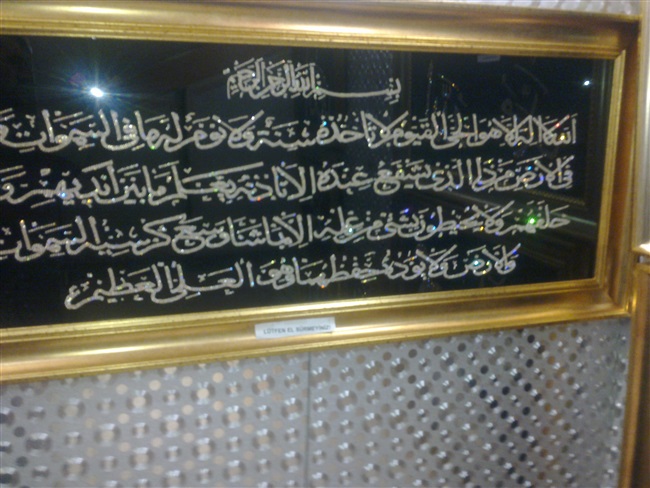 بسم الله الرحمن الرحيم
الله لا اله الا هو الحي القيوم لا تأخذه سنة ولا نوم له ما في السموات و
في الارض من ذا الذي يشفع عنده الا باذنه يعلم ما بين ايديهم و
خلفهم ولا يحيطون بشئ من علمه الا بما شاء وسع كرسيه السموات
والارض ولا يوده حفظهما وهو العلي العظيم
LÜTFEN EL SÜRMEYİNİZ